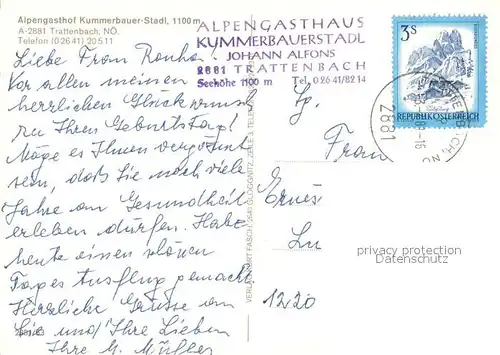 Alpengasthof Kummerbauer-Stadl, 1100 m
A-2881 Trattenbach, NÖ.
Telefon (0 26 41) 20 5 11
ALPENGASTHAUS
KUMMERBAUERSTADL
JOHANN ALFONS
2881 TRATTENBACH
Seehöhe 1100 m Tel. 0 26 41/82 14
3 S
REPUBLIK ÖSTERREICH
2881
Liebe Frau
Vor allem meinen
herrlichen Glückwunsch
zu Ihrem Geburtstag!
Möge es Ihnen vergönnt
sein, daß Sie noch viele
Jahre an Gesundheit
erleben dürfen. Habe
heute einen schönen
Tages Ausflug gemacht
Herzliche Grüsse an
Sie und Ihre Lieben
Ihre G. Müller
Frau
1220
privacy protection
Datenschutz